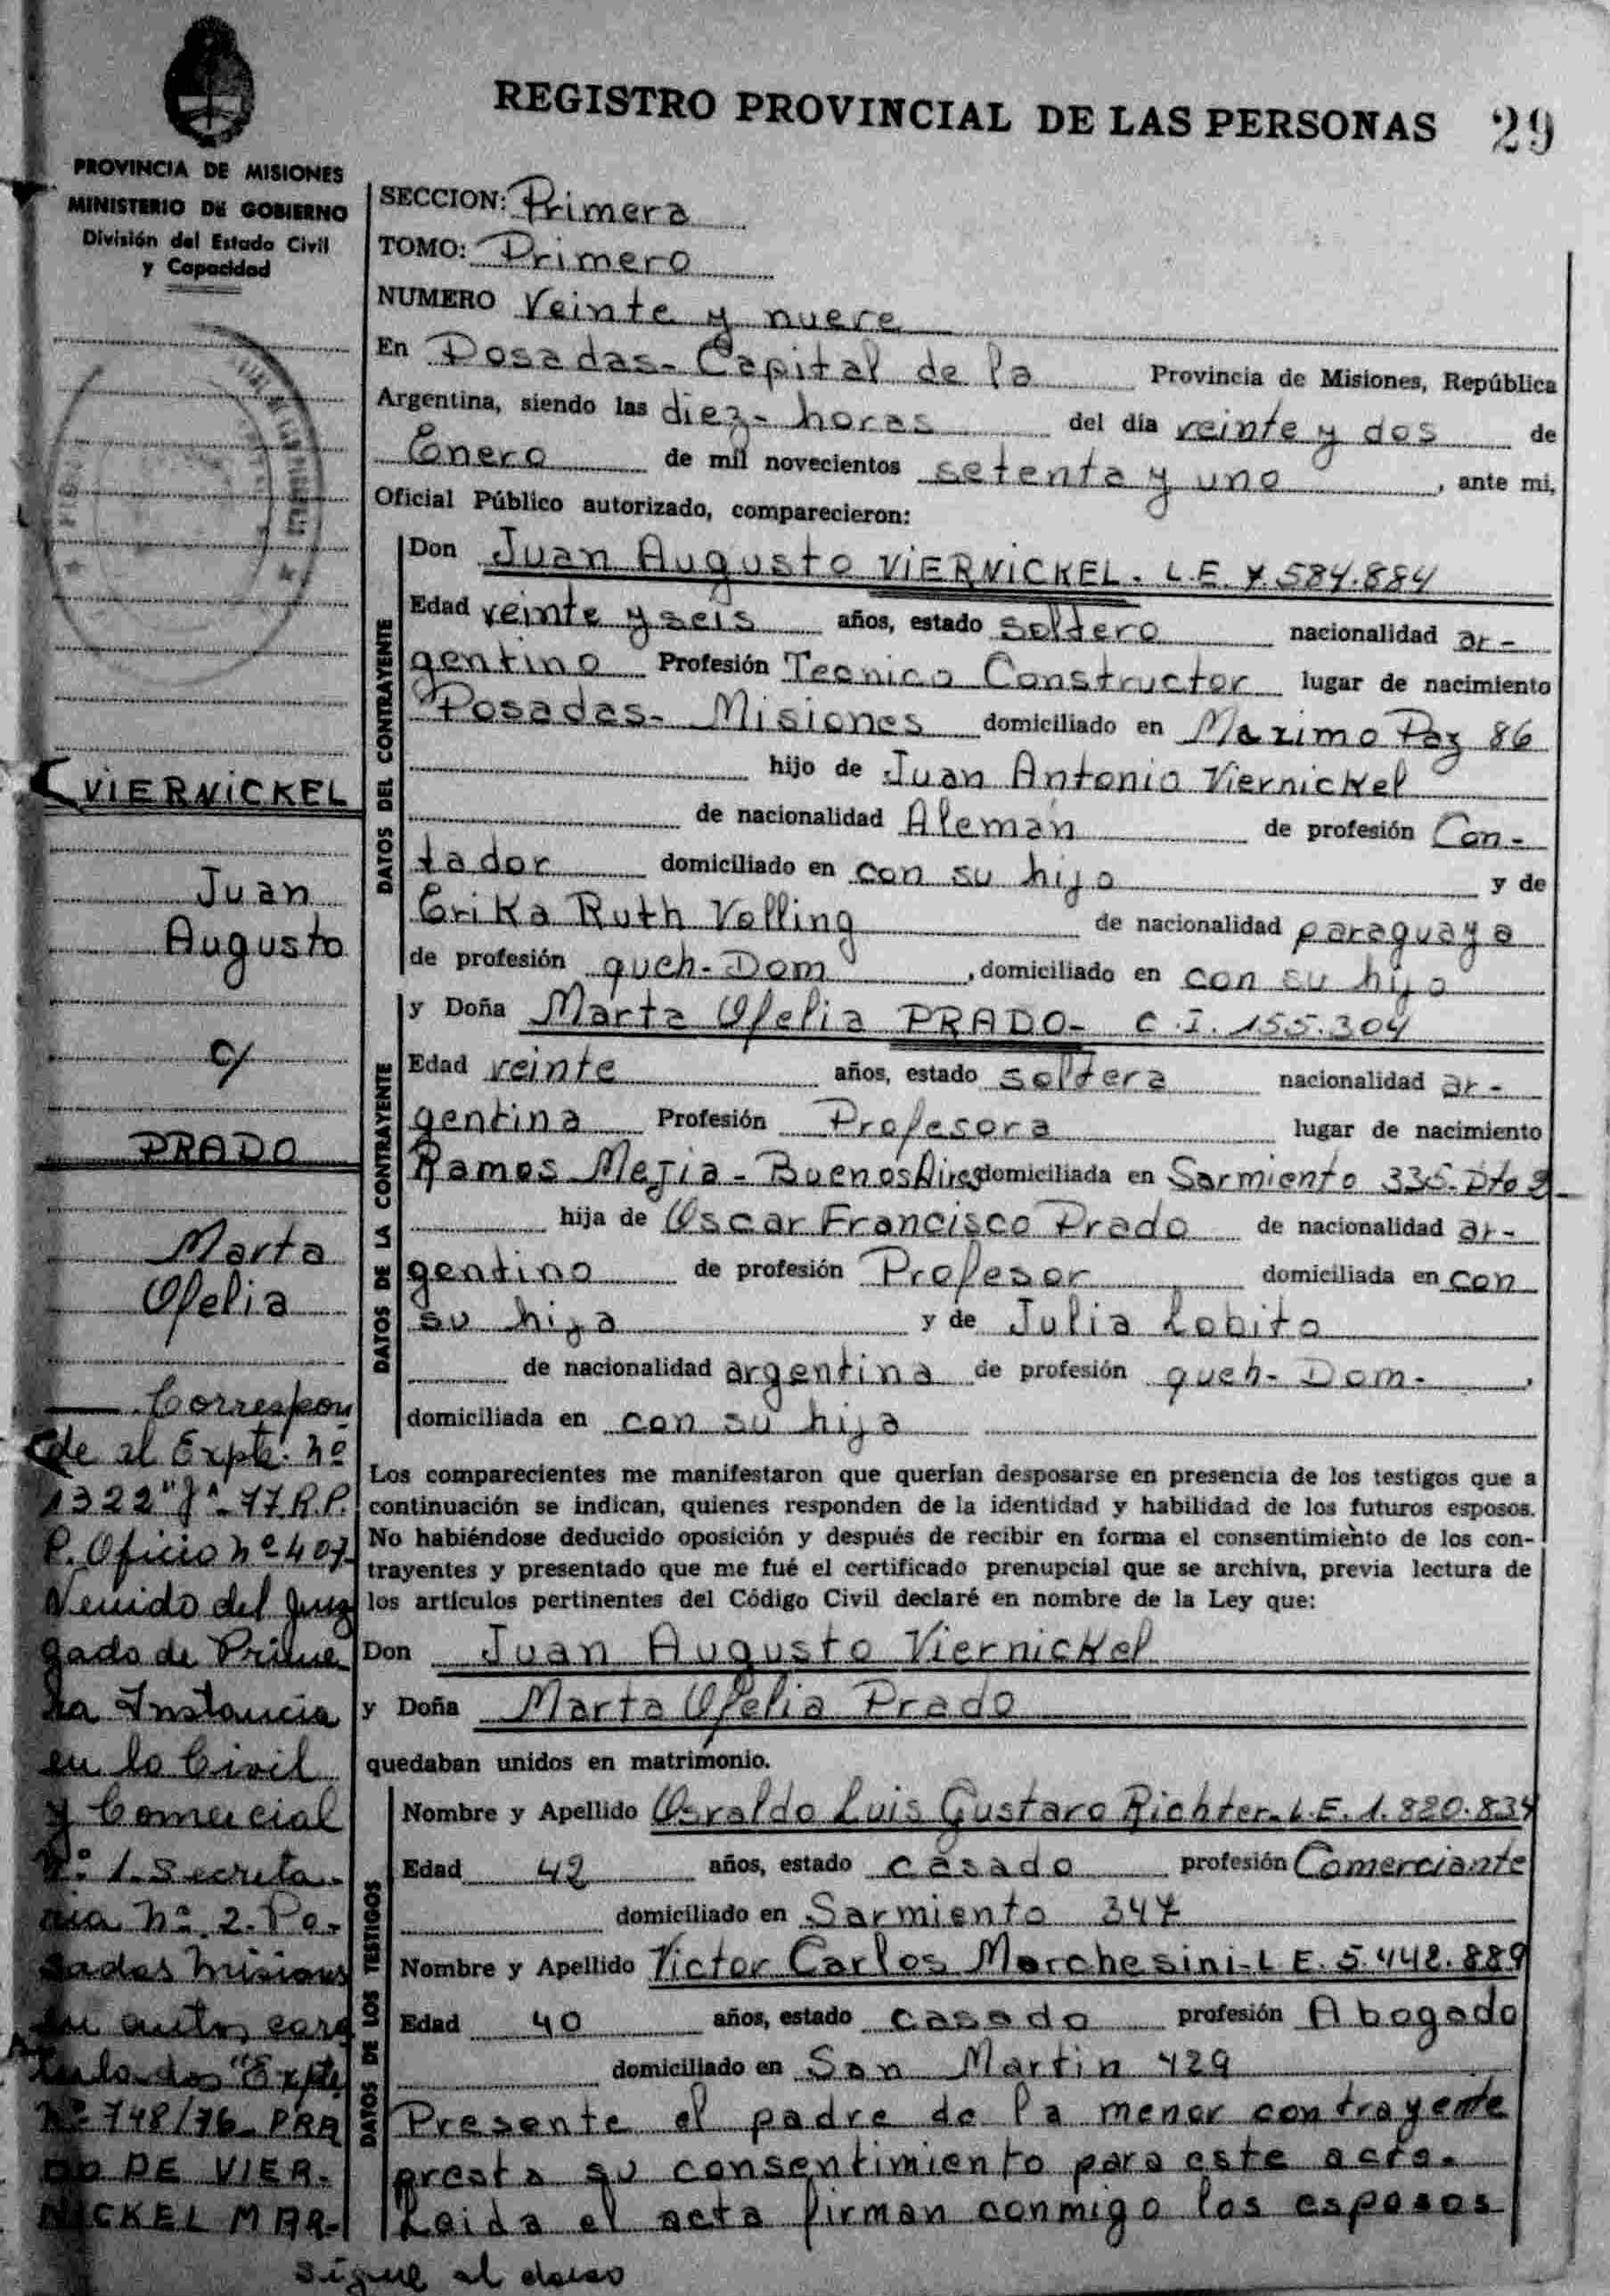 REGISTRO PROVINCIAL DE LAS PERSONAS 29
PROVINCIA DE MISIONES
MINISTERIO DE GOBIERNO
División del Estado Civil
y Capacidad
SECCION: Primera
TOMO: Primero
NUMERO Veinte y nueve
En Posadas- Capital de la Provincia de Misiones, República
Argentina, siendo las diez- horas del día veinte y dos de
Enero de mil novecientos setenta y uno, ante mi,
Oficial Público autorizado, comparecieron:
DATOS DEL CONTRAYENTE
Don Juan Augusto VIERNICKEL. L.E. 7.584.884
Edad veinte y seis años, estado soltero nacionalidad ar-
gentino Profesión Tecnico Constructor lugar de nacimiento
Posadas- Misiones domiciliado en Maximo Paz 86
hijo de Juan Antonio Viernickel
de nacionalidad Alemán de profesión Con-
tador domiciliado en con su hijo y de
Erika Ruth Velling de nacionalidad paraguaya
de profesión queh- Dom, domiciliado en con su hijo
DATOS DE LA CONTRAYENTE
y Doña Marta Ofelia PRADO- C.I. 155.304
Edad veinte años, estado soltera nacionalidad ar-
gentina Profesión Profesora lugar de nacimiento
Ramos Mejia - Buenos Aires domiciliada en Sarmiento 335- Dto 2-
hija de Oscar Francisco Prado de nacionalidad ar-
gentino de profesión Profesor domiciliada en con
su hija y de Julia Lobito
de nacionalidad argentina de profesión queh- Dom-,
domiciliada en con su hija
Los comparecientes me manifestaron que querían desposarse en presencia de los testigos que a
continuación se indican, quienes responden de la identidad y habilidad de los futuros esposos.
No habiéndose deducido oposición y después de recibir en forma el consentimiento de los con-
trayentes y presentado que me fué el certificado prenupcial que se archiva, previa lectura de
los artículos pertinentes del Código Civil declaré en nombre de la Ley que:
Don Juan Augusto Viernickel
y Doña Marta Ofelia Prado
quedaban unidos en matrimonio.
DATOS DE LOS TESTIGOS
Nombre y Apellido Osvaldo Luis Gustavo Richter- L.E. 1.820.834
Edad 42 años, estado casado profesión Comerciante
domiciliado en Sarmiento 347
Nombre y Apellido Victor Carlos Marchesini- L E. 5.442.889
Edad 40 años, estado casado profesión Abogado
domiciliado en San Martin 429
Presente el padre de la menor contrayente
presta su consentimiento para este acto.
Leida el acta firman conmigo los esposos
sigue al dorso
VIERNICKEL
Juan
Augusto
c/
PRADO
Marta
Ofelia
Correspon
de al Expte. nº
1322 "J"- 77 R.P.
P. Oficio nº 407-
Venido del Juz
gado de Prime
ra Instancia
en lo Civil
y Comercial
nº 1. Secreta-
ria nº 2. Po-
sadas Misiones
en autos cara
tulados "Expte
nº 748/76- PRA
DO DE VIER-
NICKEL MAR-